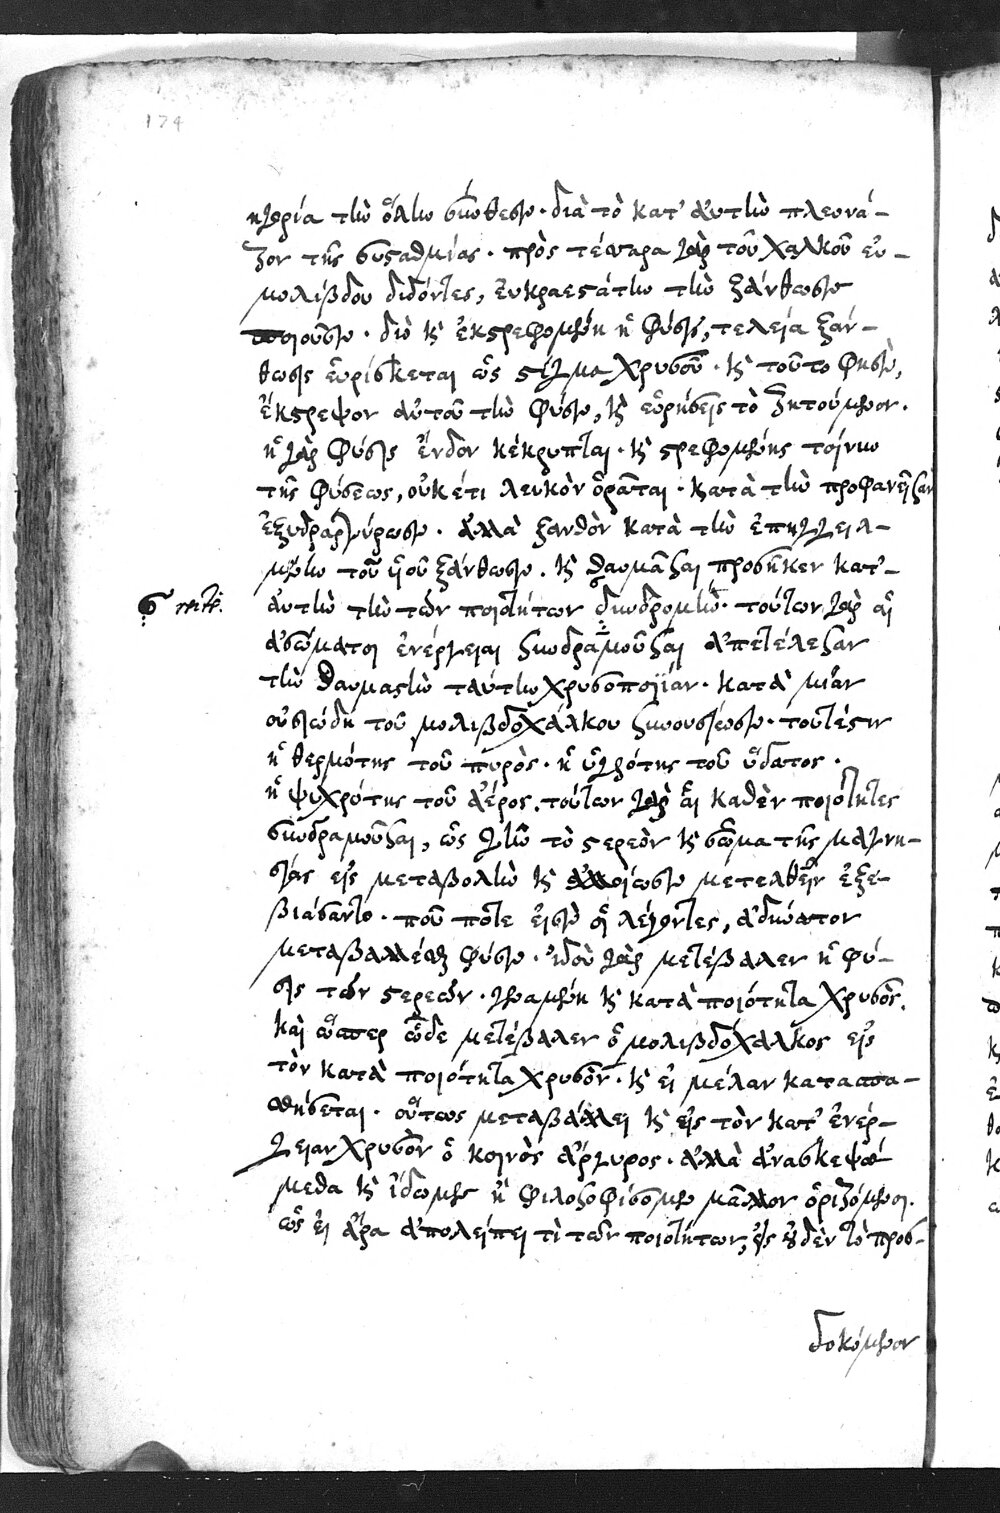 174
κηγορία τὴν ὅλην σύνθεσιν· διὰ τὸ κατ' αὐτὴν πλεονά-
ζον τῆς συσταθμίας· πρὸς τέσσαρα γὰρ τοῦ χαλκοῦ ἐν
μολίβδου διδόντες, εὐκραεστάτην τὴν ξάνθωσιν
ποιοῦσιν· διὸ καὶ ἐκστρεφομένη ἡ φύσις, τελεία ξάν-
θωσις εὑρίσκεται ὡς στίγμα χρυσοῦ· καὶ τοῦτο φησὶν,
ἔκστρεψον αὐτοῦ τὴν φύσιν, καὶ εὑρήσεις τὸ ζητούμενον.
ἡ γὰρ φύσις ἔνδον κέκρυπται· καὶ στρεφομένης τοίνυν
τῆς φύσεως, οὐκέτι λευκὸν ὁρᾶται· κατὰ τὴν προφανεῖσαν
ἐξυδραργύρωσιν· ἀλλὰ ξανθὸν κατὰ τὴν ἐπηγγειλ-
μένην τοῦ ἰοῦ ξάνθωσιν. καὶ θαυμάσαι προσῆκεν κατ'-
αὐτὴν τὴν τῶν ποιοτήτων συνδρομὴν· τούτων γὰρ αἱ
ἀσώματοι ἐνέργειαι συνδραμοῦσαι ἀπετέλεσαν
τὴν θαυμαστὴν ταύτην χρυσοποιΐαν· κατὰ μίαν
οὐσιώδη τοῦ μολιβδοχάλκου συνουσίωσιν· τουτέστιν
ἡ θερμότης τοῦ πυρὸς· ἡ ὑγρότης τοῦ ὕδατος·
ἡ ψυχρότης τοῦ ἀέρος. τούτων γὰρ αἱ καθὲν ποιότητες
συνδραμοῦσαι, ὡς γῆν τὸ στερεὸν καὶ σῶμα τῆς μαγνη-
σίας εἰς μεταβολὴν καὶ ἀλλοίωσιν μετελθεῖν ἐξε-
βιάσαντο· ποῦ ποτε εἰσὶν οἱ λέγοντες, ἀδύνατον
μεταβάλλεσθαι φύσιν· ἰδοὺ γὰρ μετέβαλεν ἡ φύ-
σις τῶν στερεῶν· γεναμένη καὶ κατὰ ποιότητα χρυσὸς.
καὶ ὥσπερ ὧδε μετέβαλεν ὁ μολιβδόχαλκος εἰς
τὸν κατὰ ποιότητα χρυσὸν· καὶ εἰ μέλαν κατασπα-
σθήσεται· οὕτως μεταβάλλει καὶ εἰς τὸν κατ' ἐνέρ-
γειαν χρυσὸν ὁ κοινὸς ἄργυρος· ἀλλὰ ἀνασκεψώ
μεθα καὶ ἴδωμεν ἢ φιλοσοφίσομεν μᾶλλον ὁριζόμενοι.
ὡς εἰ ἄρα ἀπολείπει τὶ τῶν ποιοτήτων, εἰς οὐδὲν τὸ προσ-
δοκόμενον